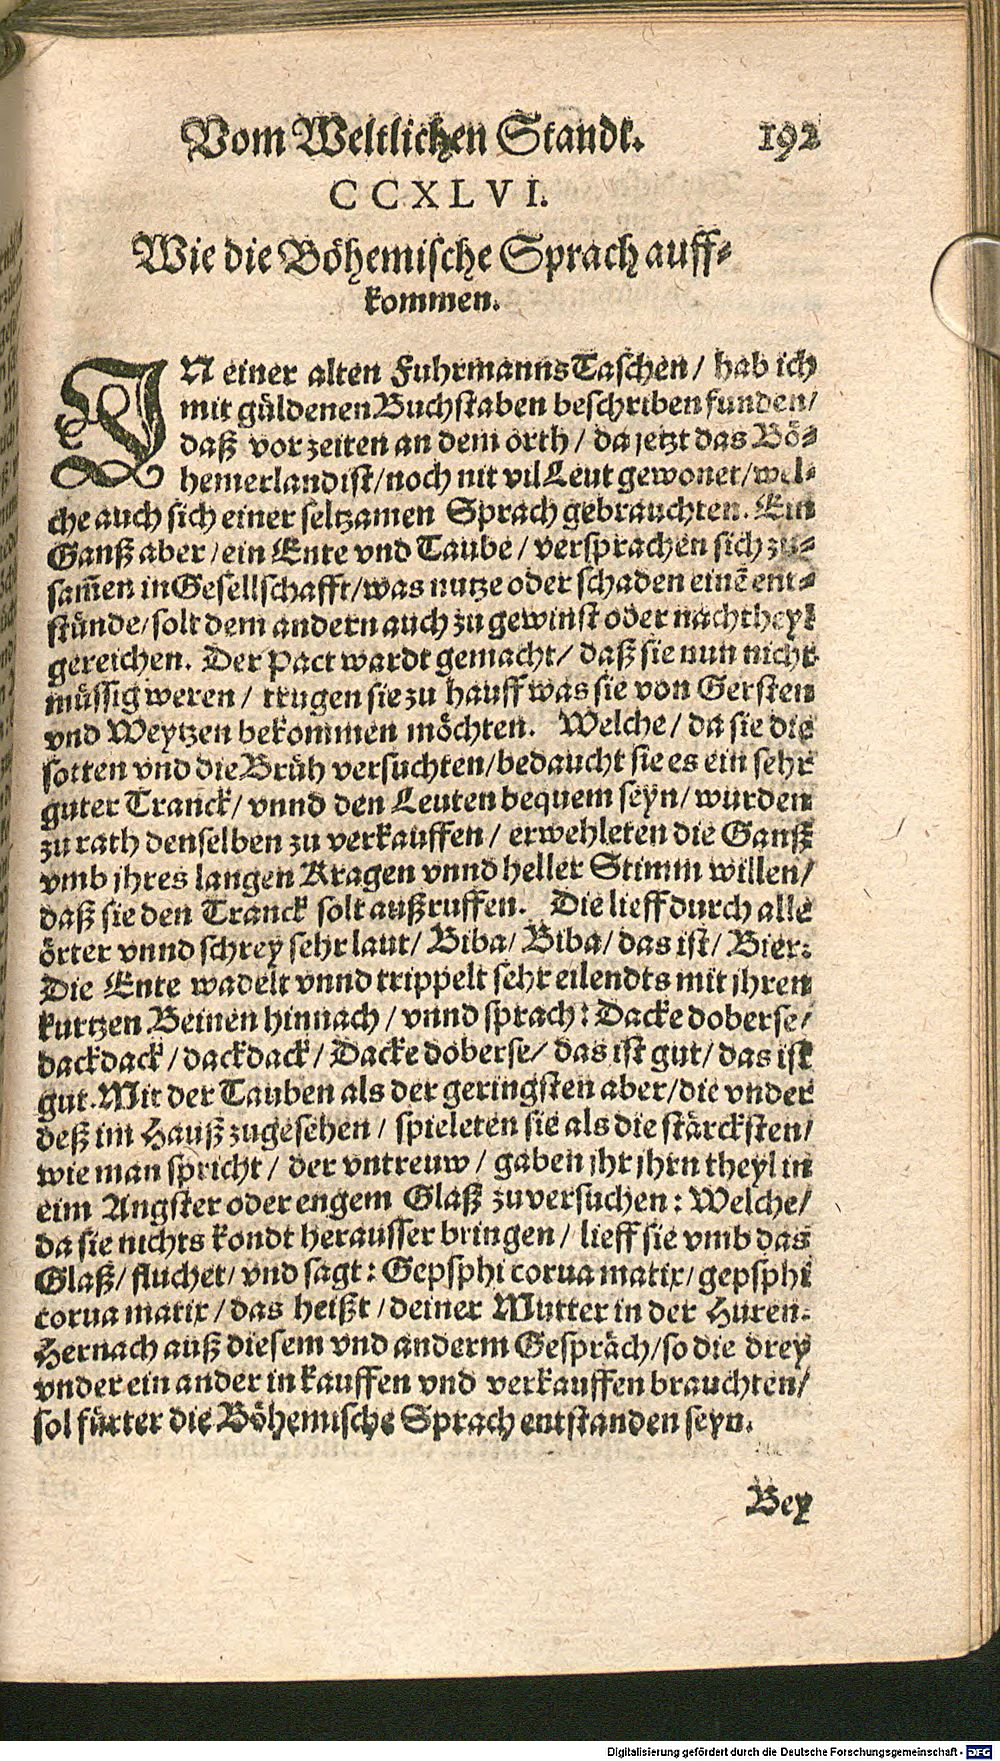 Vom Weltlichen Standt. 192
CCXLVI.
Wie die Böhemische Sprach auff-
kommen.
IN einer alten Fuhrmanns Taschen/ hab ich
mit güldenen Buchstaben beschriben funden/
daß vor zeiten an dem orth/ da jetzt das Bö-
hemerland ist/ noch nit vil Leut gewonet/ wel-
che auch sich einer seltzamen Sprach gebrauchten. Ein
Ganß aber/ ein Ente vnd Taube/ versprachen sich zu-
sam̃en in Gesellschafft/ was nutze oder schaden einẽ ent-
stünde/ solt dem andern auch zu gewinst oder nachtheyl
gereichen. Der Pact wardt gemacht/ daß sie nun nicht
müssig weren/ trugen sie zu hauff was sie von Gersten
vnd Weytzen bekommen möchten. Welche/ da sie die
sotten vnd die Brüh versuchten/ bedaucht sie es ein sehr
guter Tranck/ vnnd den Leuten bequem seyn/ wurden
zu rath denselben zu verkauffen/ erwehleten die Ganß
vmb jhres langen Kragen vnnd heller Stimm willen/
daß sie den Tranck solt außruffen. Die lieff durch alle
örter vnnd schrey sehr laut/ Biba/ Biba/ das ist/ Bier.
Die Ente wadelt vnnd trippelt sehr eilendts mit jhren
kurtzen Beinen hinnach/ vnnd sprach: Dacke doberse/
dackdack/ dackdack/ Dacke doberse/ das ist gut/ das ist
gut. Mit der Tauben als der geringsten aber/ die vnder
deß im Hauß zugesehen/ spieleten sie als die stärcksten/
wie man spricht/ der vntreuw/ gaben jhr jhrn theyl in
eim Angster oder engem Glaß zuversuchen: Welche/
da sie nichts kondt herausser bringen/ lieff sie vmb das
Glaß/ fluchet/ vnd sagt: Gepsphi corua matir/ gepsphi
corua matir/ das heißt/ deiner Mutter in der Huren.
Hernach auß diesem vnd anderm Gespräch/ so die drey
vnder ein ander in kauffen vnd verkauffen brauchten/
sol fürter die Böhemische Sprach entstanden seyn.
Bey
Digitalisierung gefördert durch die Deutsche Forschungsgemeinschaft - DFG